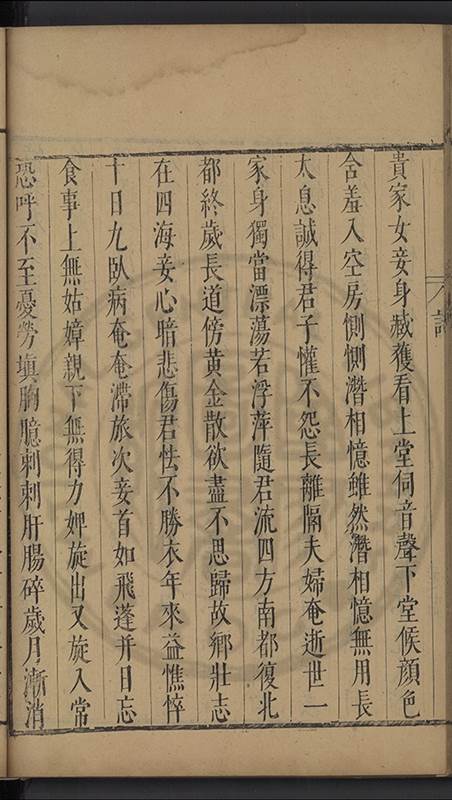 貴家女妾身臧獲看上堂伺音聲下堂候顔色
含羞入空房惻惻潛相憶雖然潛相憶無用長
太息誠得君子懽不怨長離隔夫婦奄逝世二
家身獨當漂蕩若浮萍隨君流四方南都復北
都終歲長道傍黄金散欲盡不思歸故鄉壯志
在四海妾心暗悲傷君怯不勝衣年來益憔悴
十日九臥病奄奄滯旅次妾首如飛蓬并日忘
食事上無姑嫜親下無得力婢旋出又旋入常
恐呼不至憂勞塡胸臆刺刺肝腸碎歲月漸消